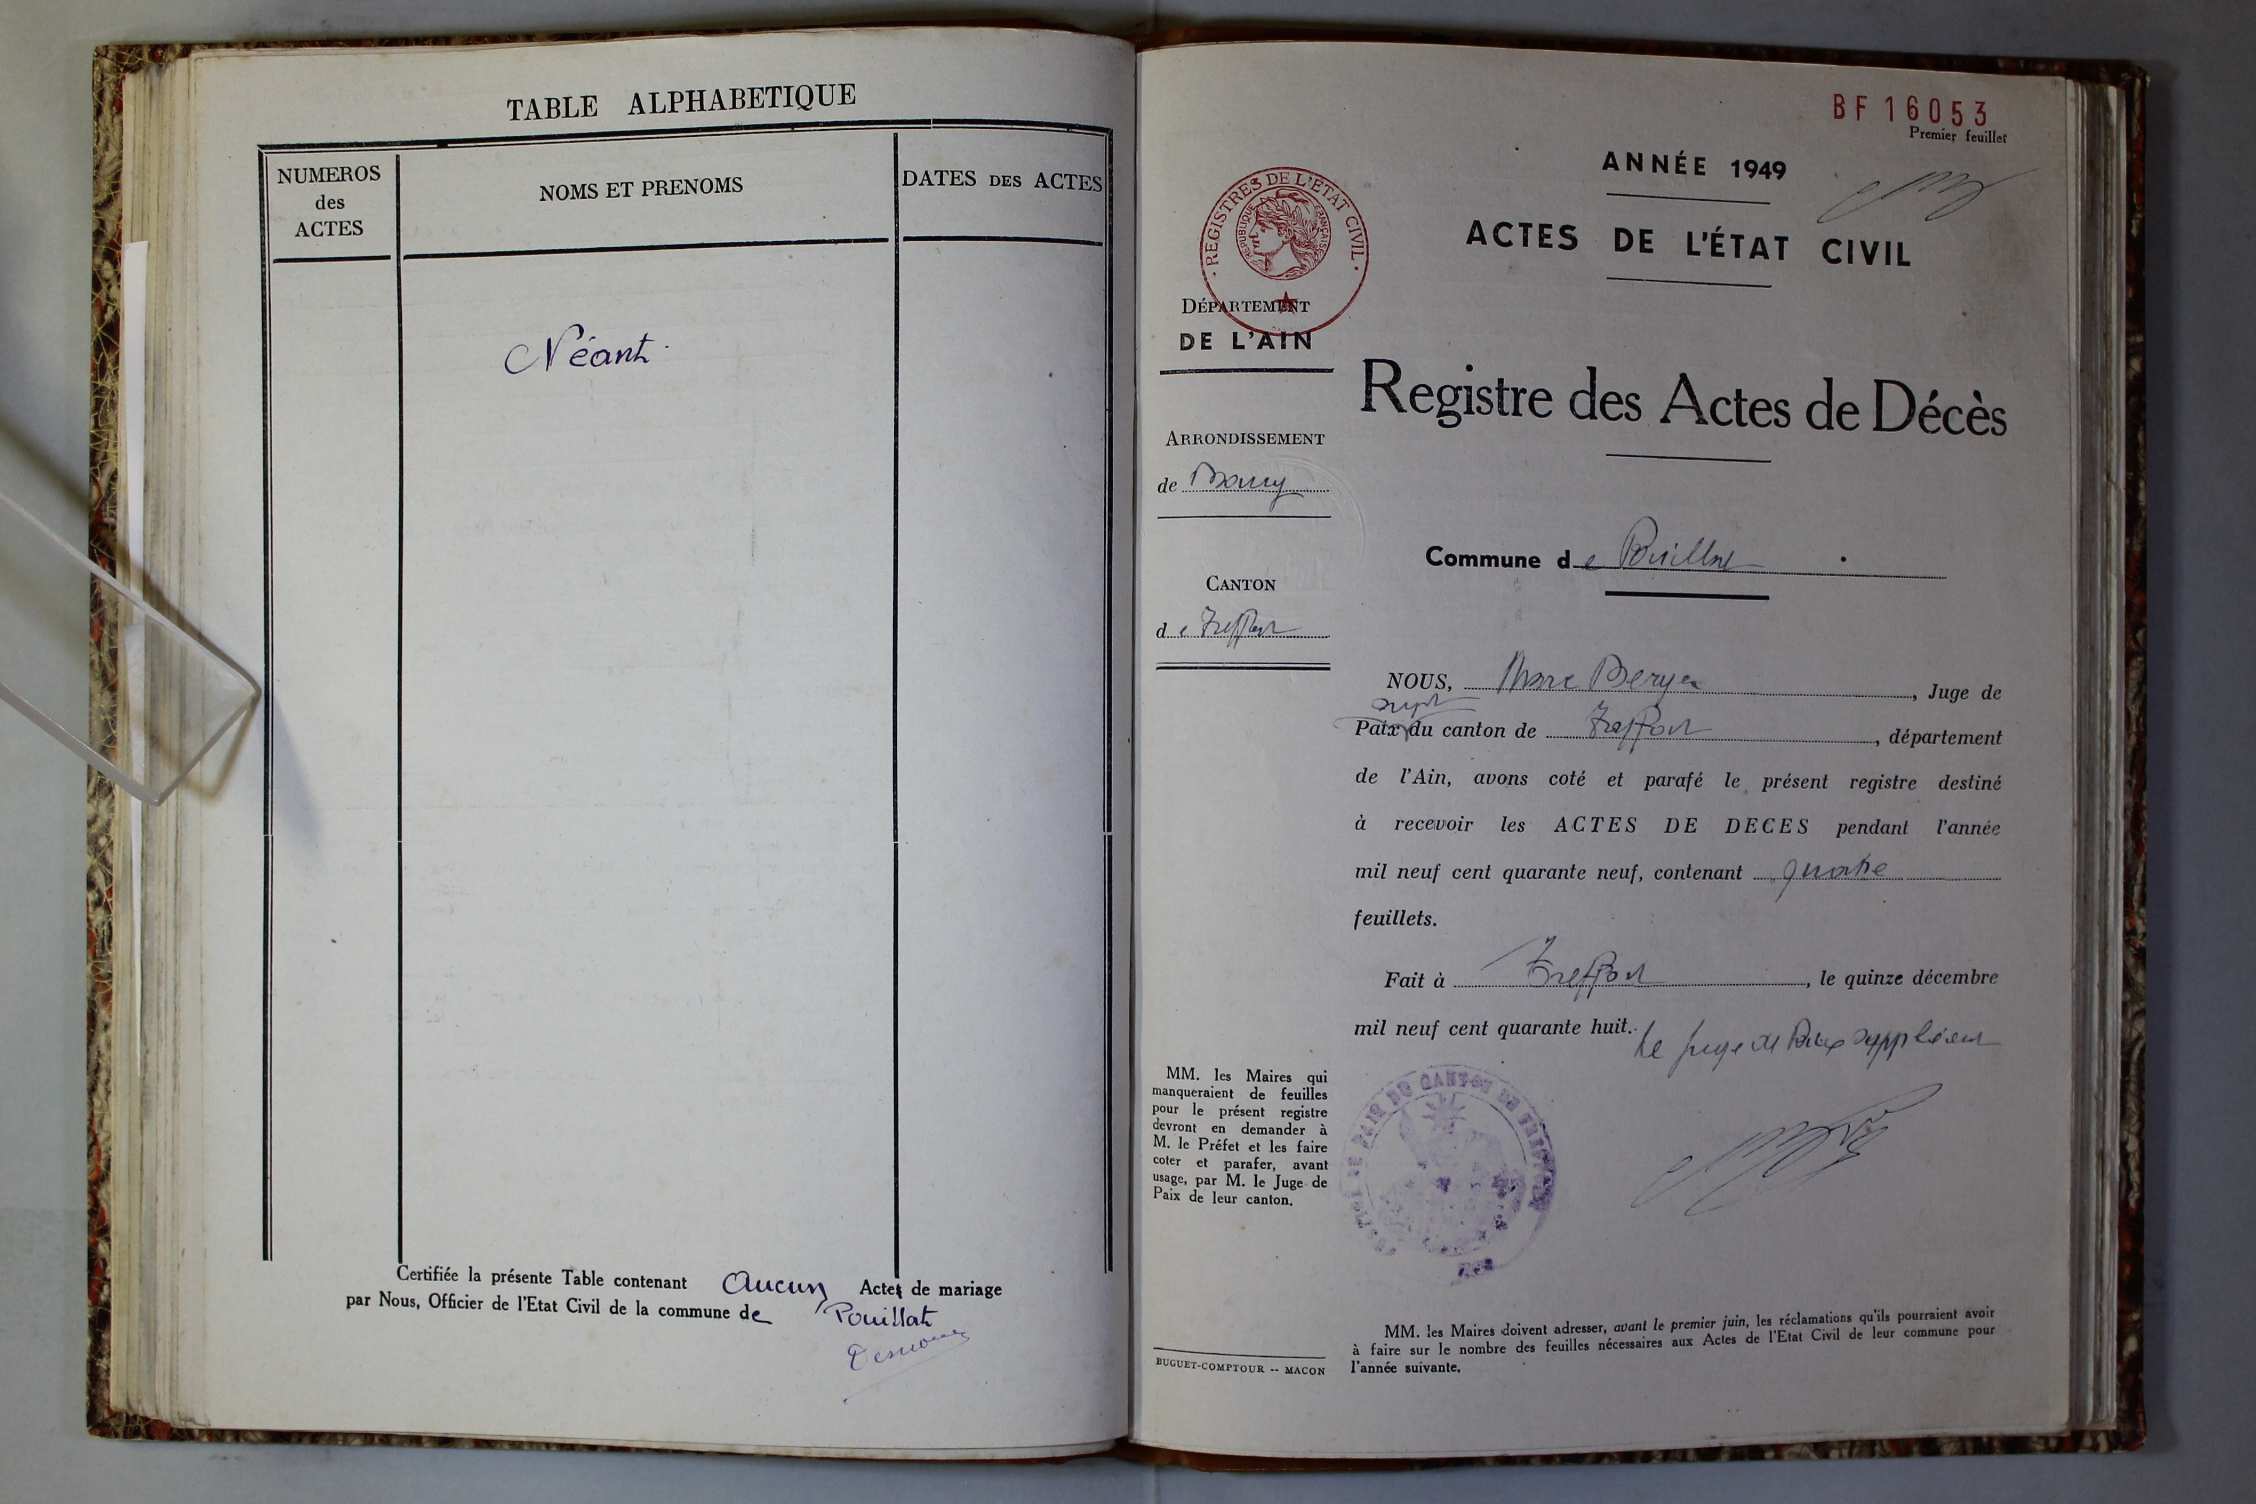 TABLE ALPHABETIQUE
NUMEROS
des
ACTES
NOMS ET PRENOMS
DATES DES ACTES
Néant.
Certifiée la présente Table contenant Aucun Actes de mariage
par Nous, Officier de l'Etat Civil de la commune de Pouillat
BF 16053
Premier feuillet
ANNÉE 1949
ACTES DE L'ÉTAT CIVIL
REGISTRES DE L'ETAT CIVIL
REPUBLIQUE FRANÇAISE
DÉPARTEMENT
DE L'AIN
Registre des Actes de Décès
ARRONDISSEMENT
de Bourg
Commune de Pouillat
CANTON
de Treffort
NOUS, Marc , Juge de
suppt
Paix du canton de Treffort, département
de l'Ain, avons coté et parafé le présent registre destiné
à recevoir les ACTES DE DECES pendant l'année
mil neuf cent quarante neuf, contenant quatre
feuillets.
Fait à Treffort, le quinze décembre
mil neuf cent quarante huit.
Le Juge de Paix suppléant
MM. les Maires qui
manqueraient de feuilles
pour le présent registre
devront en demander à
M. le Préfet et les faire
coter et parafer, avant
usage, par M. le Juge de
Paix de leur canton.
MM. les Maires doivent adresser, avant le premier juin, les réclamations qu'ils pourraient avoir
à faire sur le nombre des feuilles nécessaires aux Actes de l'Etat Civil de leur commune pour
l'année suivante.
BUGUET-COMPTOUR -- MACON